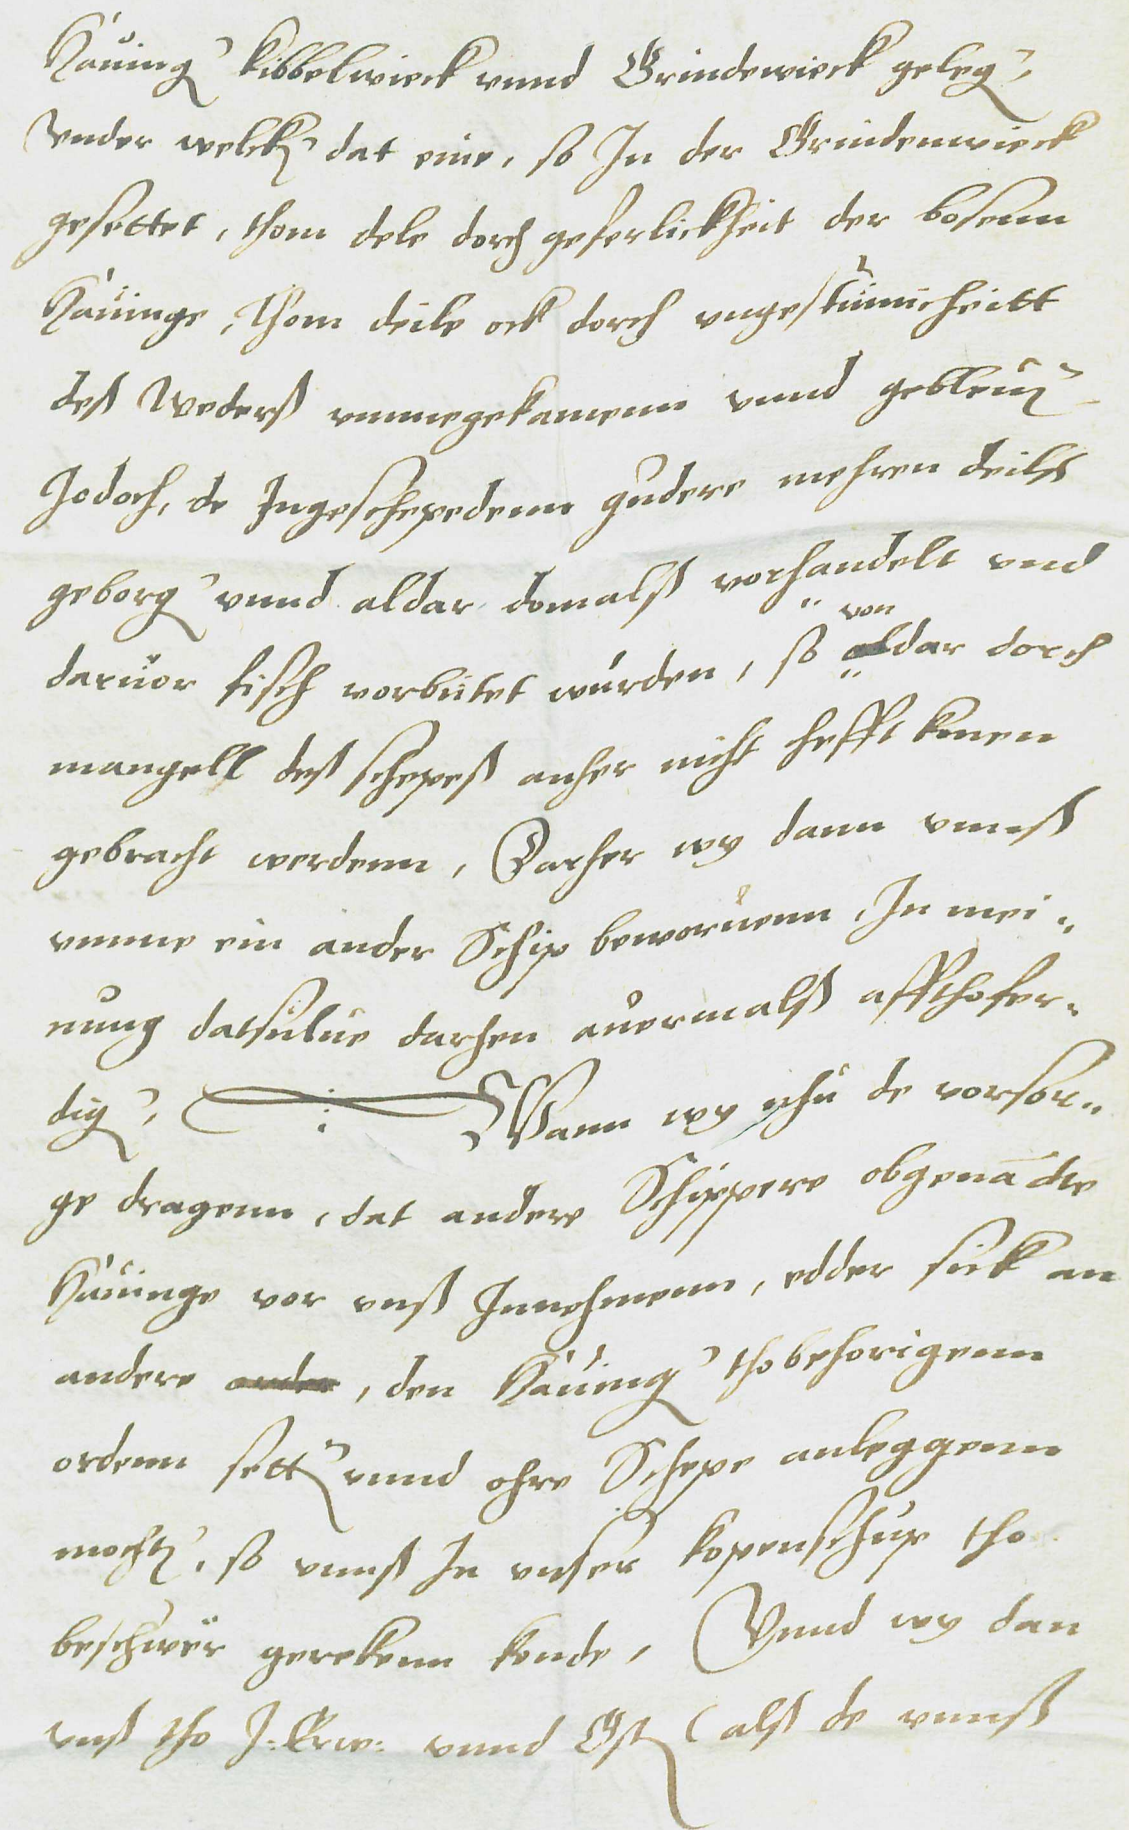 Hauing kibbelwieck vnnd Grindewieck geleg,
Vnder welck dat eine, so In der Grindenwieck
gesettet, thom dele dorch geferlickheit der bosenn
Hauinge, Thom deile ock dorch vngestumicheitt
deß Wederß vmmegekamenn vnnd gebleuen
Jedoch, de Ingeschepedenn gudere mehren deilß
geborg vnnd aldar domalß vorhandelt vnd
daruor fisch vorbutet wurden, so von aldar dorch
mangell deß schepeß anher nicht hefft konen
gebracht werdenn, Darher wy dann vnnß
vmme ein ander Schip beworuenn, In mei„
nung datsulue darhen auermalß affthofer„
dig, Wann wy nhu de vorsor„
ge dragenn, dat andere Schippere obgenate
Hauinge vor vnß Innehmenn, edder sick an
andere order, den Hauing thobehorigenn
ordenn sett vnnd ohre Schepe anleggenn
mocht, so vnnß In vnser kopenschup tho
beschwer gerekenn konde, Vnnd wy dan
vnß tho J: Erw: vnnd Gst (alß de vnnß